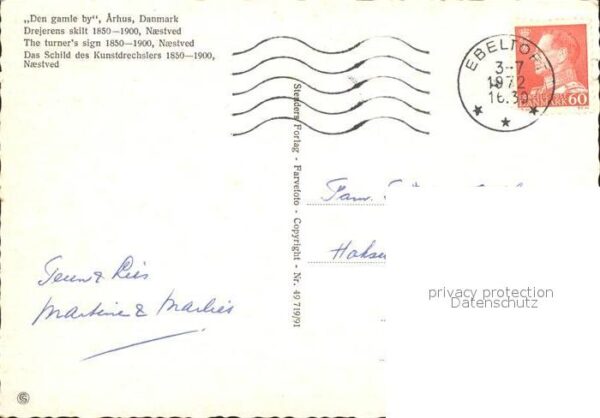 „Den gamle by", Århus, Danmark
Drejerens skilt 1850—1900, Næstved
The turner's sign 1850—1900, Næstved
Das Schild des Kunstdrechslers 1850—1900,
Næstved
EBELTOFT
3-7
1972
16.30
DANMARK 60
Stenders Forlag - Farvefoto - Copyright - Nr. 49 719/91
Fam.
privacy protection
Datenschutz
Teun & Riês
Martine & Marlies